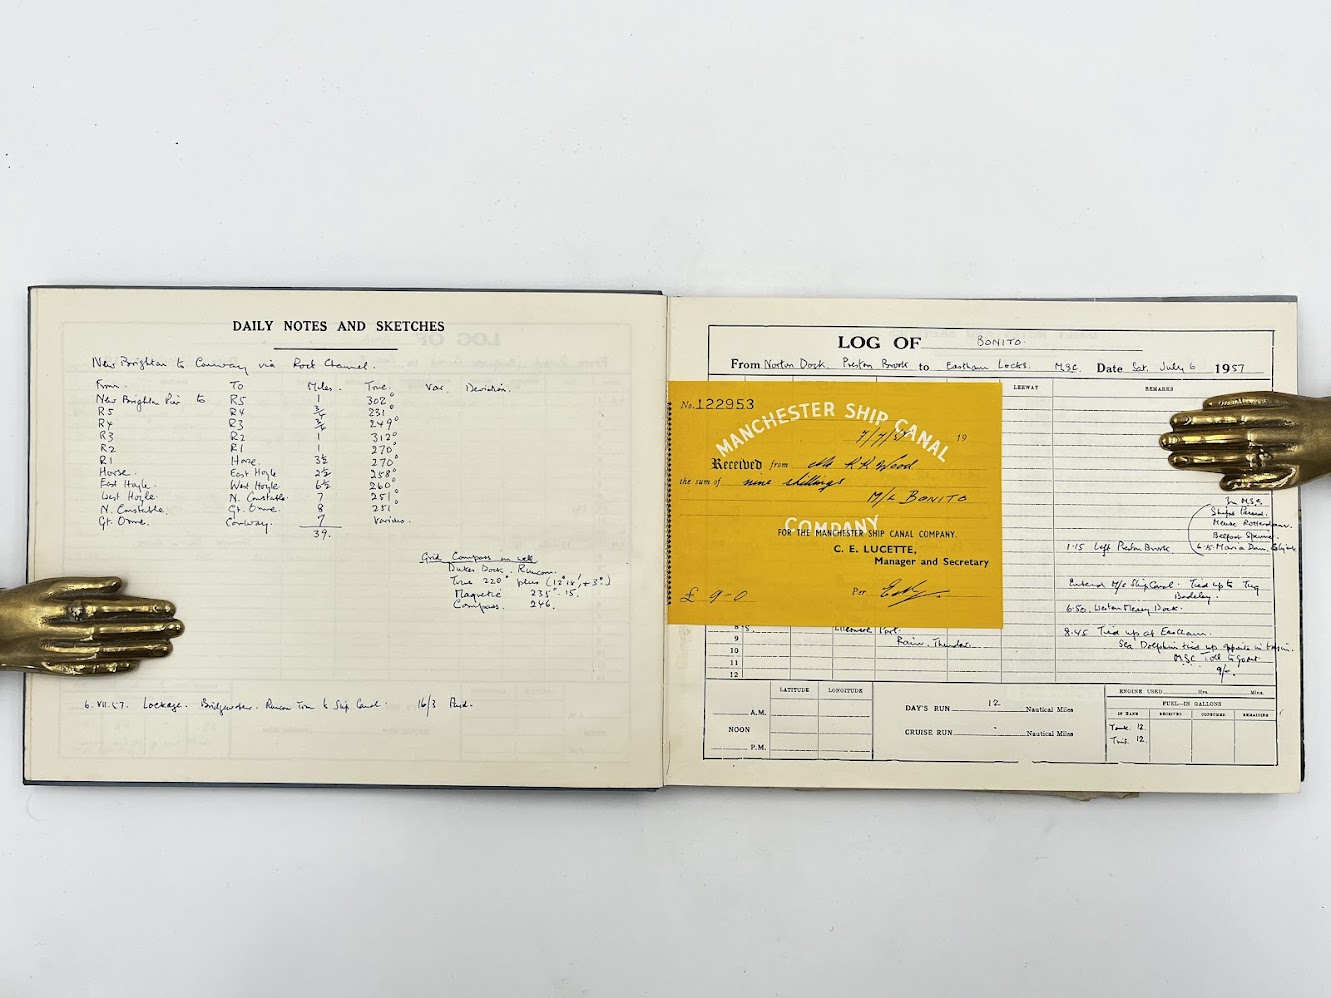 DAILY NOTES AND SKETCHES
New Brighton to Conway via Rock Channel.
From. To Miles. True. Var. Deviation.
New Brighton Pier to R5 1 302°
R5 R4 ¾ 231°
R4 R3 ¾ 249°
R3 R2 1 312°
R2 R1 1 270°
R1 Horse. 3½ 270°
Horse. East Hoyle 2½ 258°
East Hoyle. West Hoyle 6½ 260°
West Hoyle. N. Constable. 7 251°
N. Constable. Gt. Orme. 8 251°
Gt. Orme. Conway. 7 various.
39.
Grid Compass on
Dukes Dock. Runcorn.
True 220° plus (12° 15', + 3°)
Magnetic 235°. 15.
Compass. 246.
6.VII.57. Lockage. Bridgewater. Runcorn to Ship Canal. 16/3 Paid.
LOG OF BONITO.
From Norton Dock. Preston Brook to Eastham Locks. M.S.C. Date Sat. July 6 1957
LEEWAY REMARKS
No. 122953
MANCHESTER SHIP CANAL
7/7/57 19
Received from Mr R.H. Wood
the sum of nine shillings
M/c BONITO
COMPANY
FOR THE MANCHESTER SHIP CANAL COMPANY.
C. E. LUCETTE,
Manager and Secretary
£ 9-0 Per
In M.S.C.
Ships Passed.
Meuse Rotterdam.
Belfast
1.15 Left Preston Brook.
Entered M/c Ship Canal. Tied up to Tug
6.50. Weston Mersey Dock.
8 Ellesmere Port.
8.45 Tied up at Eastham.
9 Rain. Thunder.
Sea Dolphin tied up opposite in
10
M.S.C. Toll to
11 9/-.
12
LATITUDE LONGITUDE
A.M.
NOON
P.M.
DAY'S RUN 12 Nautical Miles
CRUISE RUN Nautical Miles
ENGINE USED Hrs. Mins.
FUEL—IN GALLONS
IN HAND RECEIVED CONSUMED REMAINING
Tank 12.
12.